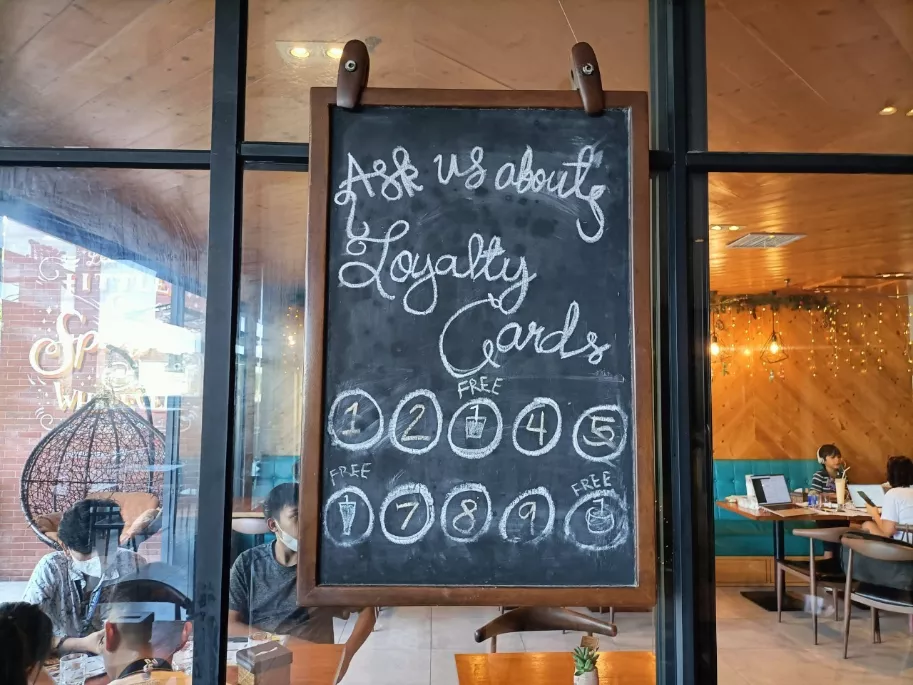 Ask us about
Loyalty
Cards
FREE
1 2 4 5
FREE
FREE
7 8 9